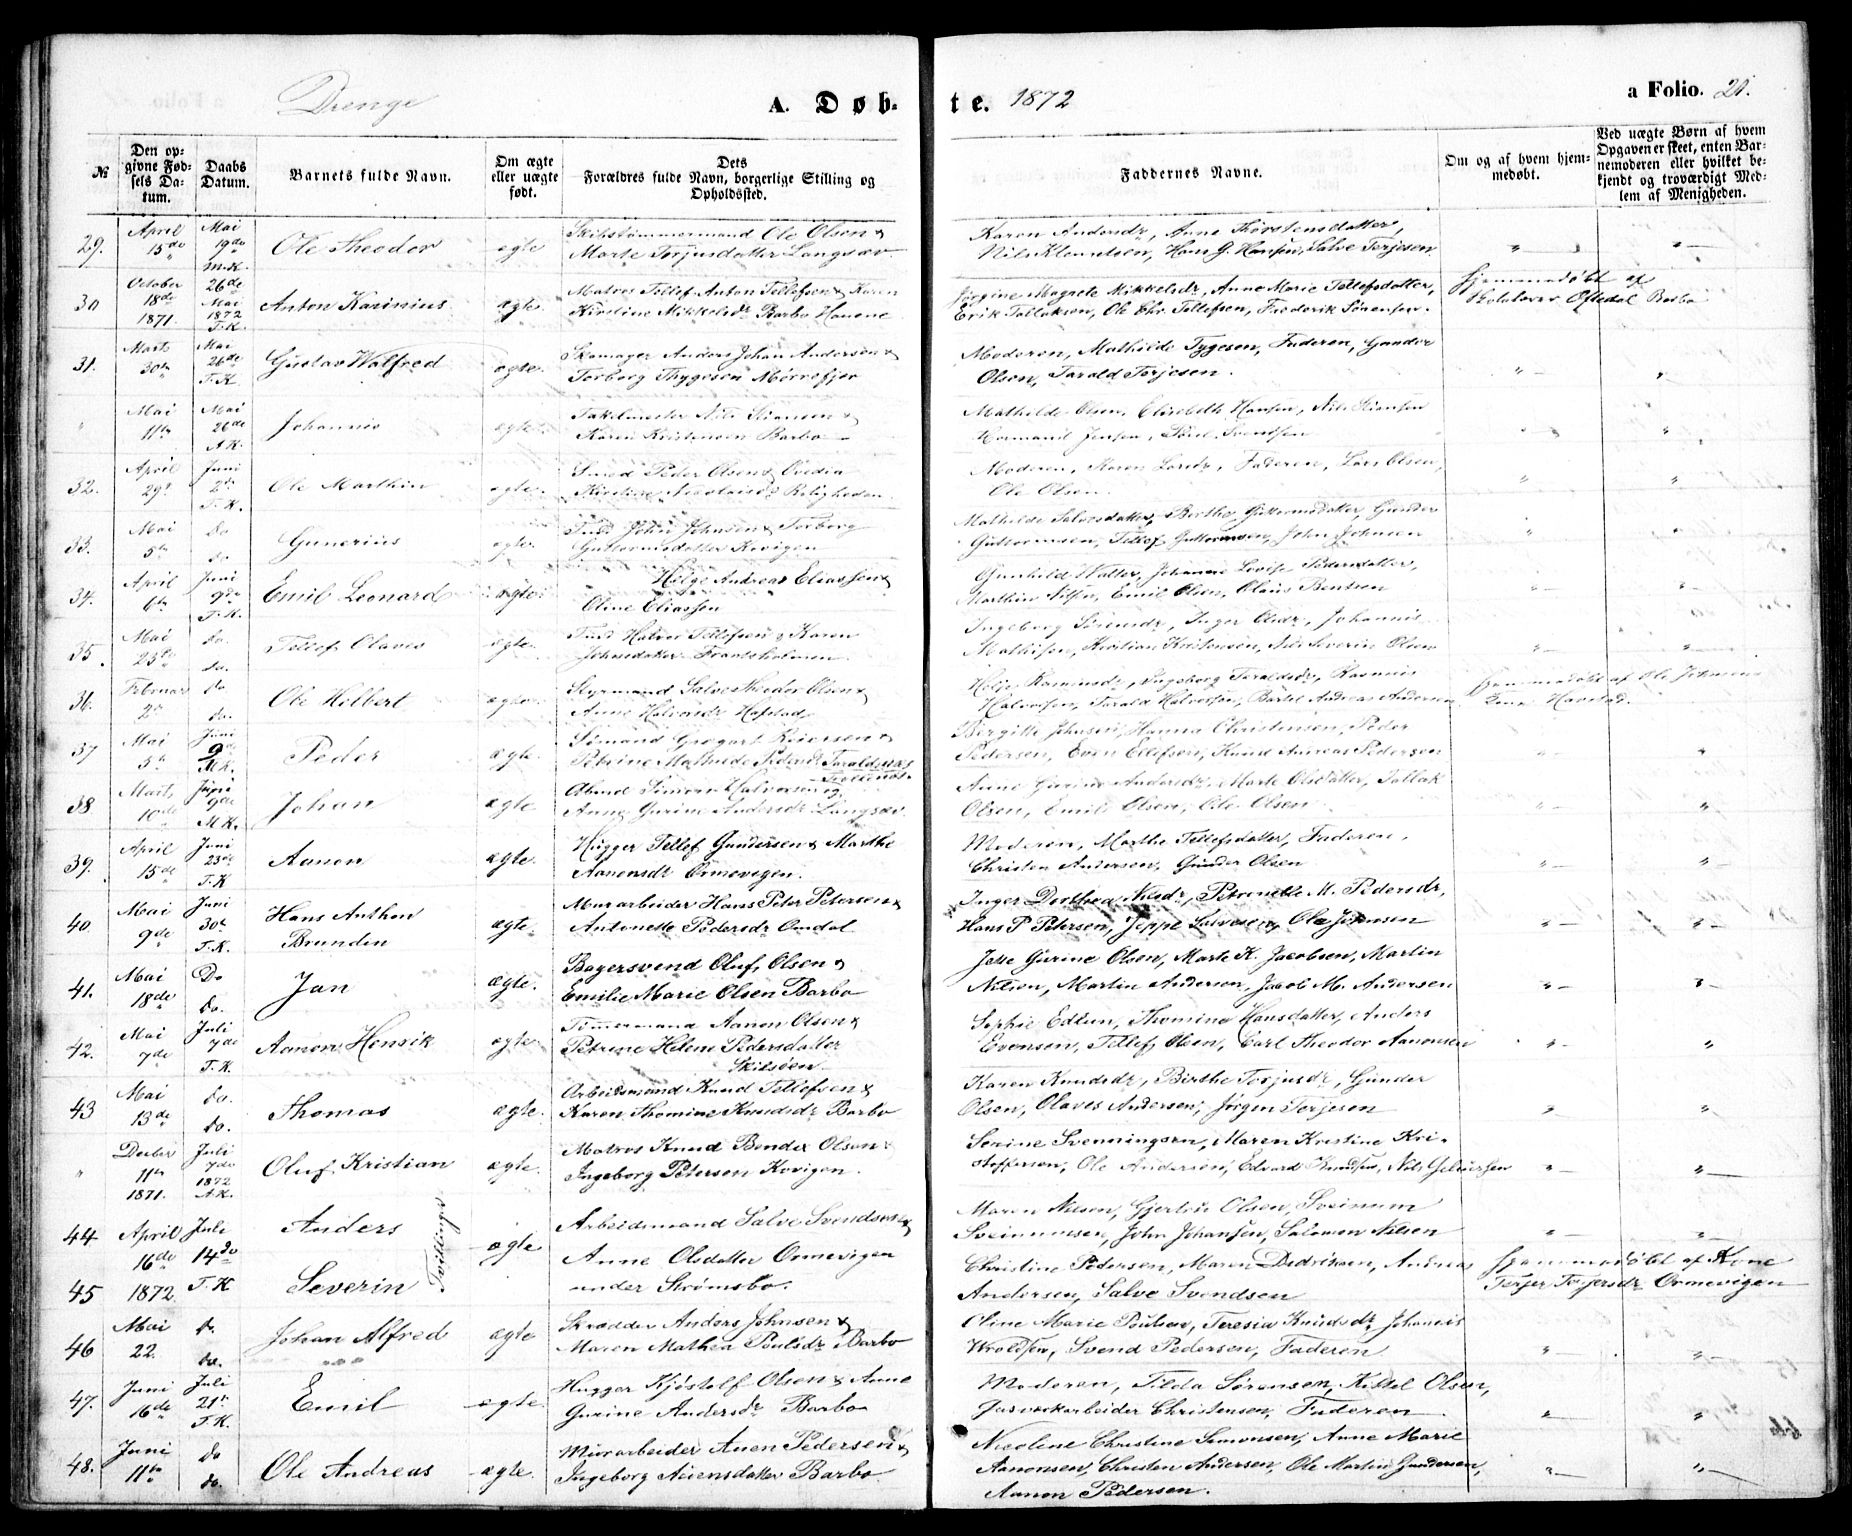 Drenge
A. Døb-
te. 1872
a Folio. 20.
№
Den op-
givne Fød-
sels Da-
tum.
Daabs
Datum.
Barnets fulde Navn.
Om ægte
eller uægte
født.
Dets
Forældres fulde Navn, borgerlige Stilling og
Opholdssted.
Faddernes Navne.
Om og af hvem hjem-
medøbt.
Ved uægte Børn af hvem
Opgaven er skeet, enten Bar-
nemoderen eller hvilket be-
kjendt og troværdigt Med-
lem af Menigheden.
29. April 15de Mai 19de M.K. Ole Theodor ægte
Skibstømmermand Ole Olsen &
Marte Torjusdatter Langsæv
Karen Andersdr, Anne Thorstensdatter,
Nils Klemetsen, Hans G. Hansen, Salve Terjesen
30 October 18de 1871. 26de Mai 1872 T.K. Anton Karinius ægte
Matros Tellef Anton Tellefsen & Karen
Kirstine Mikkelsdr Barbo Havene
Jørgine Magrete Mikkelsdr, Anne Marie Tellefsdatter,
Erik Tallaksen, Ole Chr. Tellefsen, Frederik Sørensen.
Hjemmedøbt af
Oftedal Barbo
31. Marts 30te Mai 26de T.K. Gustav Walfred ægte
Skomager Anders Johan Andersen &
Torborg Thygesen Mørrefjær
Moderen, Mathilde Tygesen, Faderen, Gunder
Olsen, Tarald Terjesen.
" Mai 11te Mai 26de A.K. Johannes ægte
Nils Kiansen &
Karen Kristensen Barbo
Mathilde Olsen, Elisabeth Hansen, Nils Kiansen
Hermand Jensen, Svendsen
32. April 29. Juni 2de T.K. Ole Marthin ægte
Smed Peder Olsen & Ovedia
Kirstine Nicolaisdr Roligheden
Moderen, Karen Larsdr, Faderen, Lars Olsen,
Ole Olsen.
33. Mai 5te do do Gunerius ægte
John Johnsen & Torborg
Guttormsdatter Kovigen
Mathilde Salvesdatter, Birthe Guttormsdatter, Gunder
Guttormsen, Tellef Guttormsen, John Johnsen
34. April 6te Juni 9de T.K. Emil Leonard ægte
Helge Andreas Eliassen &
Oline Eliassen
Gunhild Walter, Johanne Lovise Pedersdatter,
Marthin Nilsen, Emil Olsen, Olaus Bentsen
35. Mai 23de do. do. Tellef Olaves ægte
Halvor Tellefsen & Karen
Johnsdatter Frantsholmen
Ingeborg Sørensdr, Inger Olsdr, Johannis
Mathisen, Kristian Kristensen, Nils Severin Olsen
36. Februar 2de do do. Ole Hilbert ægte
Styrmand Salve Theodor Olsen &
Anne Halvorsdr Havstad
Helje Rasmusdr, Ingeborg Taraldsdr, Rasmus
Halvorsen, Tarald Halvorsen, Bertel Andreas Andersen
Hjemmedøbt af Ole Johnsens
Kone Havstad.
37 Mai 5te Juni 9de M.K. Peder ægte
Sømand Gregert Reiersen &
Petrine Mathilde Pedersdr Taraldsnæs
Birgitte Johnsen, Hanna Christensen, Peder
Pedersen, Even Ellefsen, Knud Andreas Pedersen
38 Marts 10de Juni 9de M.K. Johan ægte
Simon Halvorsen og
Anne Gurine Andersdr Langsæv
Anne Gurine Andersdr, Marte Olsdatter, Tallak
Olsen, Emil Olsen, Ole Olsen
39. April 15de Juni 23de T.K Aanon ægte
Hugger Tellef Gundersen & Marthe
Aanonsdr Ormevigen.
Moderen, Marthe Tellefsdatter, Faderen,
Christen Andersen, Gunder Olsen
40 Mai 9de Juni 30te T.K. Hans Anthon
Brundin ægte.
Murarbeider Hans Peter Petersen &
Antonette Pedersdr Omdal
Inger Dorthea Nilsdr, Petronelle M. Pedersdr,
Hans P Petersen, Jeppe Salvesen, Ole Johnsen
41. Mai 18de Do do. Jan ægte.
Bagersvend Oluf Olsen &
Emilie Marie Olsen Barbo
Jelle Gurine Olsen, Marte K. Jacobsen, Martin
Nilsen, Martin Andersen, Jacob M. Andersen
42. Mai 7de Juli 7de T.K. Aanon Henrik ægte
Timmermand Aanon Olsen &
Petrine Helene Pedersdatter
Skilsøen
Sophie Edlun, Thomine Hansdatter, Anders
Evensen, Tellef Olsen, Carl Theodor Aanonsen
43 Mai 13de do. do. Thomas ægte.
Arbeidsmand Knud Tellefsen &
Karen Thomine Knudsdr Barbo
Karen Knudsdr, Birthe Torjusdr, Gunder
Olsen, Olaves Andersen, Jørgen Terjesen
" Decbr 11te 1871. Juli 7de 1872 A.K. Oluf Kristian ægte.
Matros Knud Bendix Olsen &
Ingeborg Petersen Kovigen.
Serine Svenningsen, Maren Kristine Kri-
stoffersen, Ole Andersen, Edvard Knudsen, Nils
44 April 16de Juli 14de Anders Tvillinge ægte
Arbeidsmand Salve Svendsen &
Anne Olsdatter Ormevigen
Maren Nilsen, Gjertrud Olsen, Sveinum
Sveinumsen, John Johansen, Salomon Nilsen
45 1872 T.K Severin
under Strømsbo.
Christine Pedersen, Maren Didriksen, Andreas
Andersen, Salve Svendsen
Hjemmedøbt af Kone
Terjer Torjersdr Ormevigen
46 Mai 22. do. do. Johan Alfred ægte
Skrædder Anders Johnsen &
Maren Mathea Poulsdr Barbo
Oline Marie Poulsen, Teresia Knudsdr, Johannes
Wroldsen, Svend Pedersen, Faderen
47. Juni 16de Juli 21de T.K. Emil ægte
Hugger Kjøstolf Olsen & Anne
Gurine Andersdr Barbo
Moderen, Tilda Sørensen, Kittel Olsen,
Gasværkarbeider Christensen, Faderen
48. Juni 11te do do. Ole Andreas ægte.
Murarbeider Auen Pedersen &
Ingeborg Auensdatter Barbo
Nicoline Christine Simonsen, Anne Marie
Aanonsen, Christen Andersen, Ole Martin Gundersen,
Aanon Pedersen.